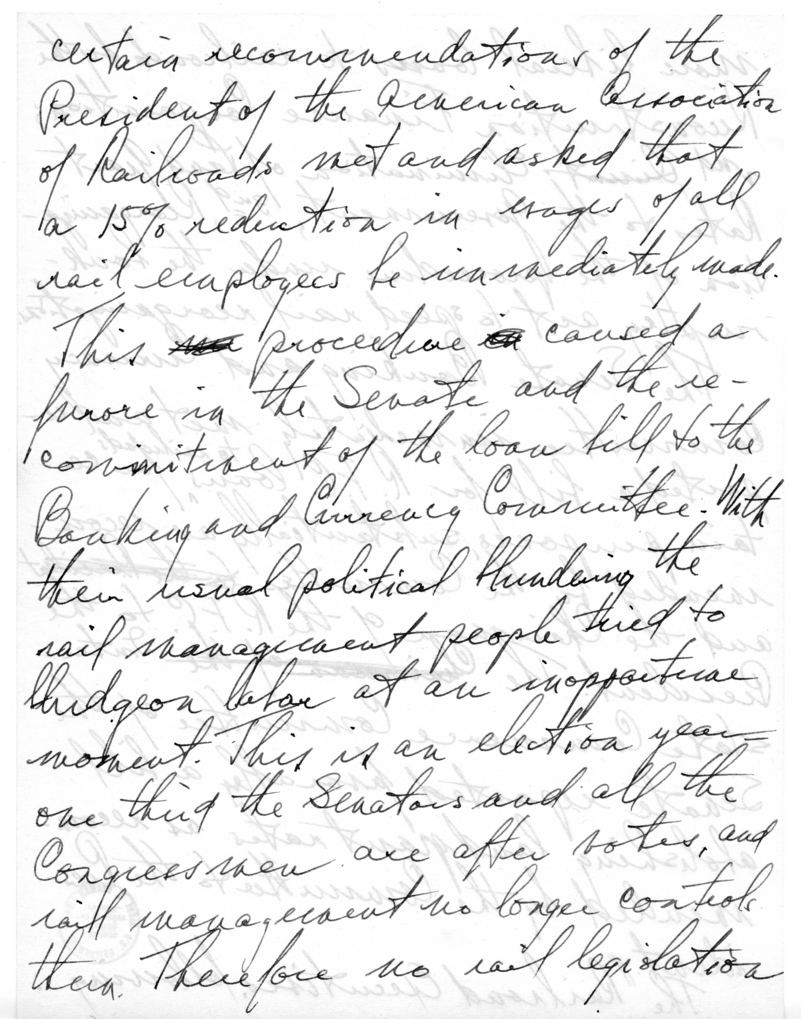 certain recommendations of the
President of the American Association
of Railroads met and asked that
a 15% reduction in wages of all
rail employees be immediately made.
This procedure caused a
furore in the Senate and the re-
commitment of the loan bill to the
Banking and Currency Committee. With
their usual political blundering the
rail management people tried to
bludgeon labor at an inopportune
moment. This is an election year—
one third the Senators and all the
Congressmen are after votes, and
rail management no longer controls
them. Therefore no rail legislation